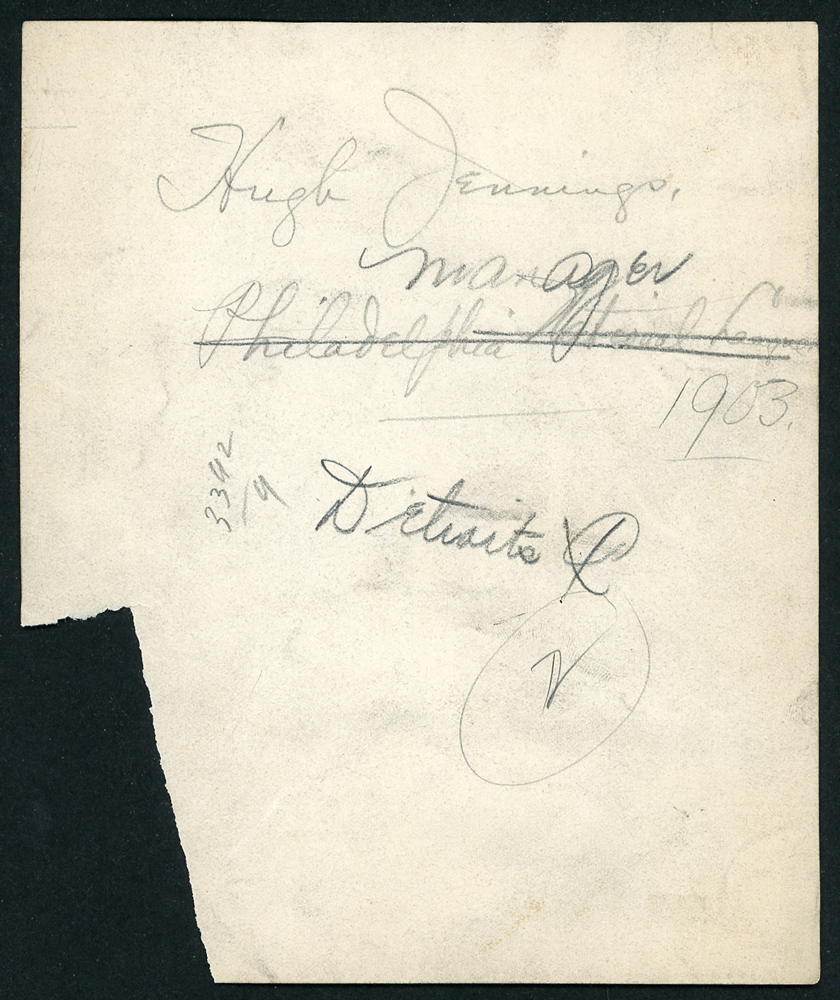 Hugh Jennings.
manager
Philadelphia National League
1903.
3342
Detroits